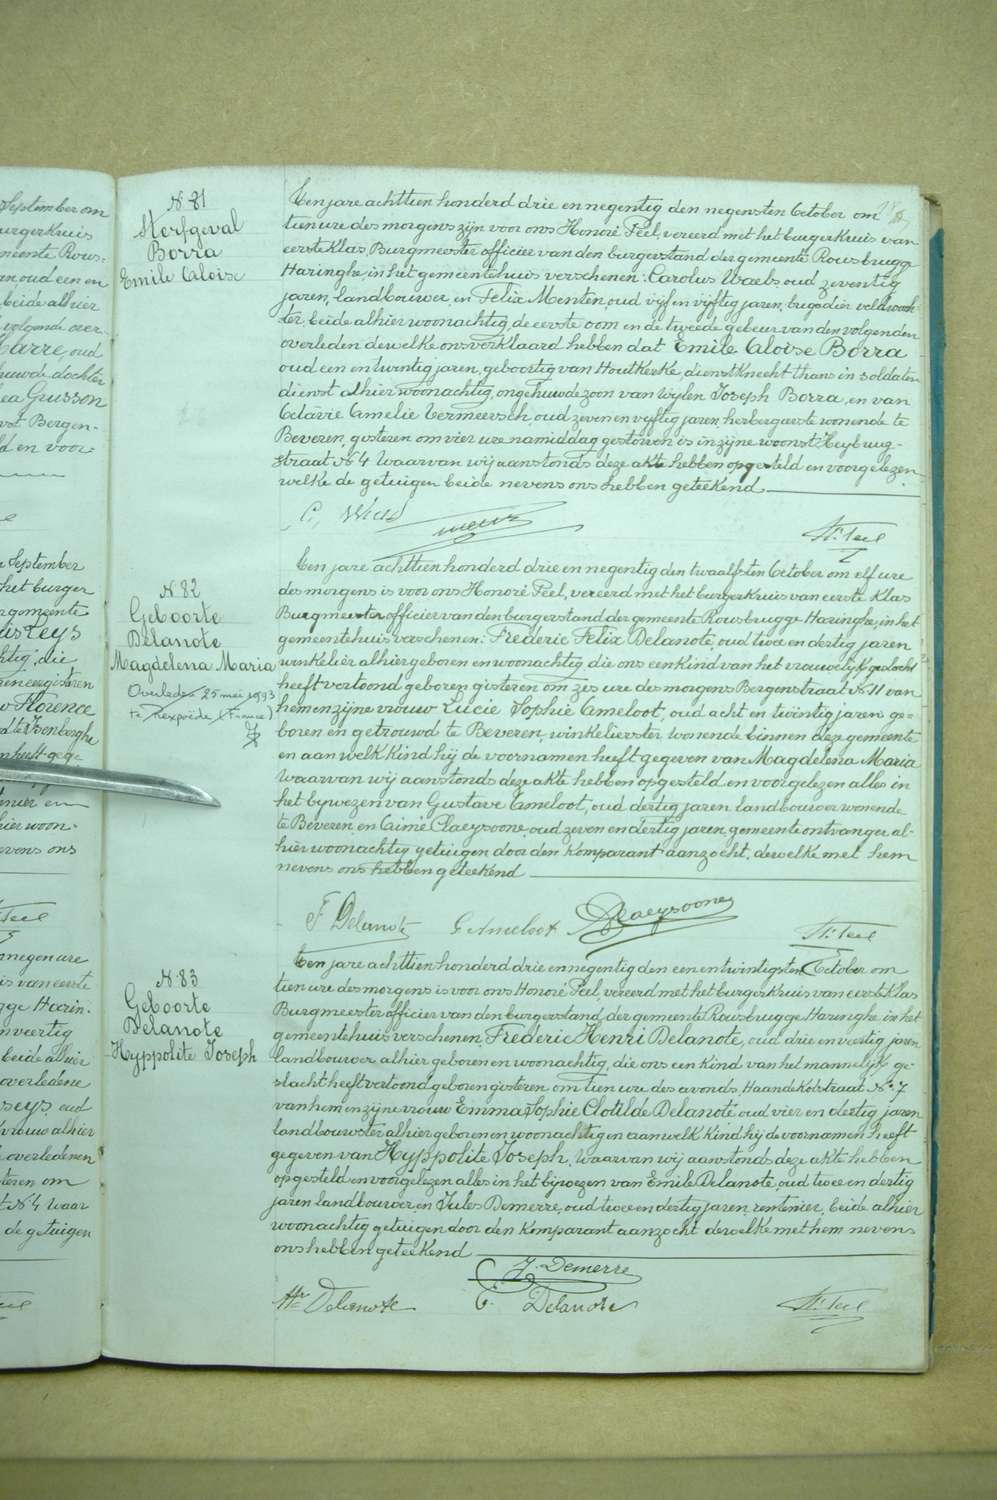 N 81
Sterfgeval
Borra
Emile Aloïse
Ten jare achttien honderd drie en negentig den negensten October om
tien ure des morgens zijn voor ons Honoré Peel, vereerd met het burgerkruis van
eerste klas, Burgmeester officier van den burgerstand der gemeente Rousbrugge
Haringhe, in het gemeentehuis verschenen: Carolus Waels, oud zeventig
jaren, landbouwer, en Felix Menten, oud vijf en vijftig jaren, brigadier veldwach
ter, beide alhier woonachtig, de eerste oom en de tweede gebuur van den volgenden
overleden dewelke ons verklaard hebben dat Emile Aloïse Borra
oud een en twintig jaren, geboortig van Houtkerke, dienstknecht thans in soldaten
dienst alhier woonachtig, ongehuwde zoon van wijlen Joseph Borra, en van
Octavie Amelie Vermeersch, oud zeven en vijftig jaren, herbergierste wonende te
Beveren, gisteren om vier ure namiddag gestorven is in zijne woonst
straat N 4 waarvan wij aanstonds deze akte hebben opgesteld en voorgelezen
welke de getuigen beide nevens ons hebben geteekend
H. Peel
N 82
Geboorte
Delanote
Magdelena Maria
Overleden 25 mei 1993
te Rexpoëde (France)
Ten jare achttien honderd drie en negentig den twaalfsten October om elf ure
des morgens is voor ons Honoré Peel, vereerd met het burgerkruis van eerste klas
Burgmeester officier van den burgerstand der gemeente Rousbrugge Haringhe, in het
gemeentehuis verschenen: Frederic Felix Delanote, oud twee en dertig jaren
winkelier alhier geboren en woonachtig, die ons een kind van het vrouwelijk geslacht
heeft vertoond geboren gisteren om zes ure des morgens Bergenstraat N 11 van
hem en zijne vrouw Lucie Sophie Ameloot, oud acht en twintig jaren ge-
boren en getrouwd te Beveren, winkelierster wonende binnen deze gemeente
en aan welk kind hij de voornamen heeft gegeven van Magdelena Maria
Waarvan wij aanstonds deze akte hebben opgesteld en voorgelezen alles in
het bijwezen van Gustave Ameloot, oud dertig jaren landbouwer wonende
te Beveren, en Aimé Claeysoone, oud zeven en dertig jaren, gemeente ontvanger al-
hier woonachtig getuigen door den komparant aanzocht, dewelke met hem
nevens ons hebben geteekend
F Delanote
G Ameloot
A Claeysoone
H. Peel
N 83
Geboorte
Delanote
Hyppolite Joseph
Ten jare achttien honderd drie en negentig den een en twintigsten October om
tien ure des morgens is voor ons Honoré Peel, vereerd met het burgerkruis van eerste klas
Burgmeester officier van den burgerstand, der gemeente Rousbrugge Haringhe in het
gemeentehuis verschenen, Frederic Henri Delanote, oud drie en veertig jaren
landbouwer alhier geboren en woonachtig, die ons een kind van het mannelijk ge-
slacht heeft vertoond geboren gisteren om tien ure des avonds, Haandekotstraat N° 7
van hem en zijne vrouw Emma Sophie Clotilde Delanote oud vier en dertig jaren
landbouwster alhier geboren en woonachtig en aan welk kind hij de voornamen heeft
gegeven van Hyppolite Joseph. Waarvan wij aanstonds deze akte hebben
opgesteld en voorgelezen alles in het bijwezen van Emile Delanote, oud twee en dertig
jaren landbouwer, en Jules Demerre, oud twee en dertig jaren, rentenier, beide alhier
woonachtig getuigen door den komparant aanzocht dewelke met hem nevens
ons hebben geteekend
J. Demerre
Delanote
E. Delanote
H. Peel